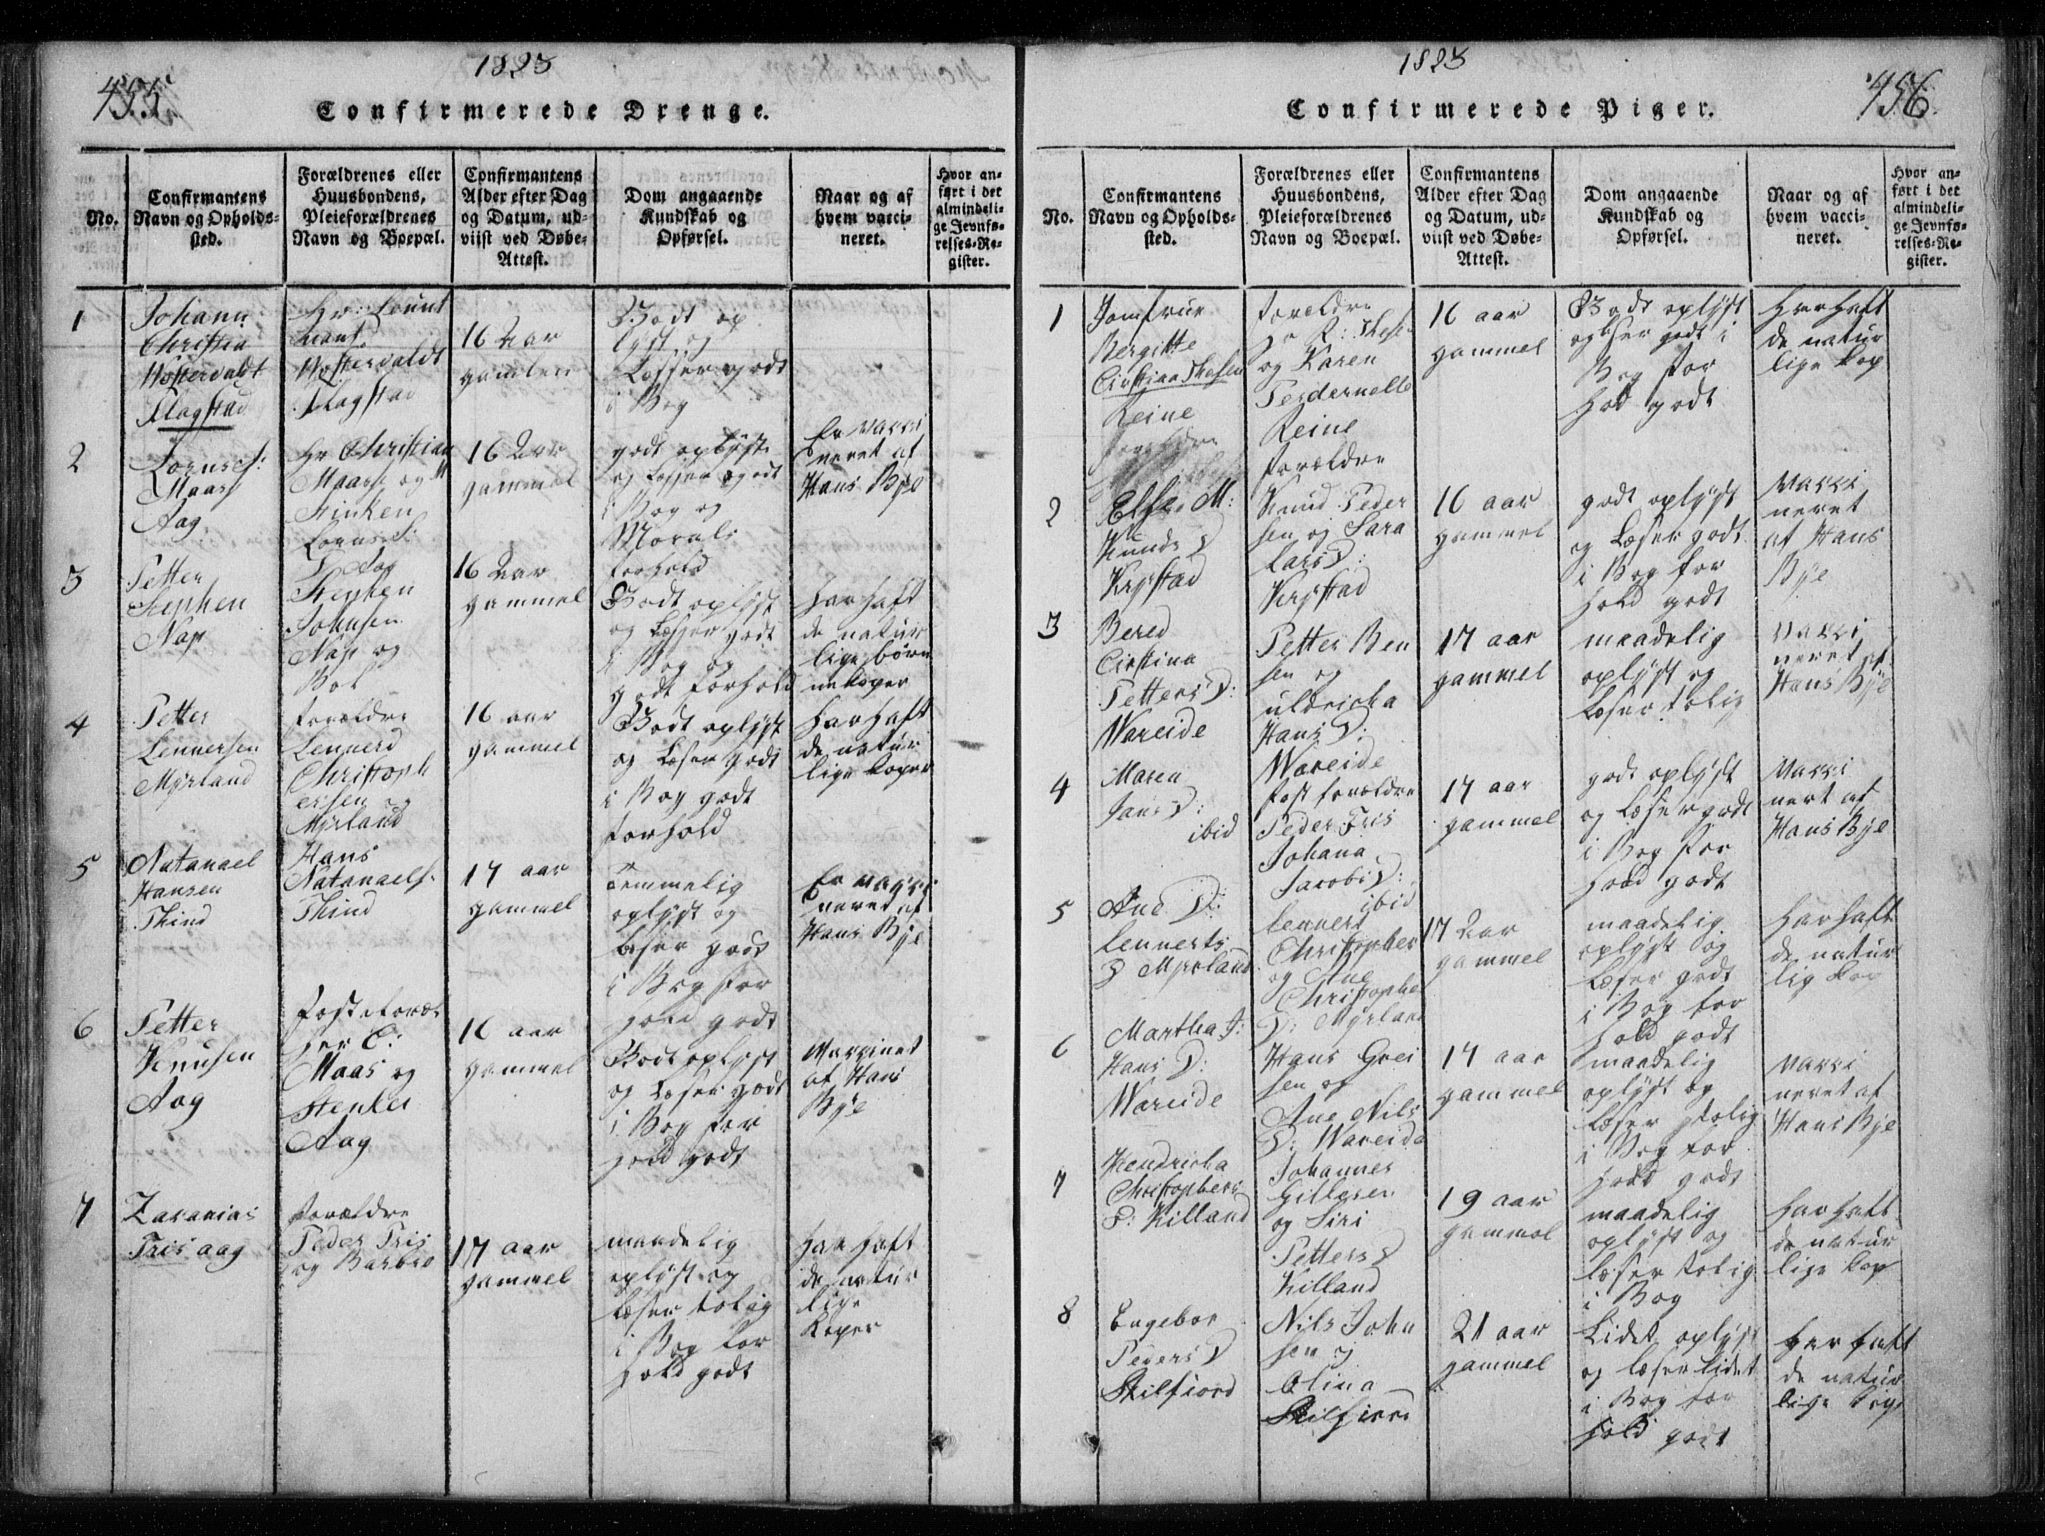 455
1823
Confirmerede Drenge.
No.
Confirmantens
Navn og Opholds-
sted.
Forældrenes eller
Huusbondens,
Pleieforældrenes
Navn og Boepæl.
Confirmantens
Alder efter Dag
og Datum, ud-
viist ved Døbe-
Attest.
Dom angaaende
Kundskab og
Opførsel.
Naar og af
hvem vacci-
neret.
Hvor an-
ført i det
almindeli-
ge Jevnfø-
relses-Re-
gister.
1
Johann
Christia
Flagstad
Hr:
Flagstad
16 Aar
gamlen
Godt op
lyst og
Læsser godt
i Bog
2
Maass
Aag
Hr Christian
Maass og
16 Aar
gammel
godt oplyst
og Læsser godt
i Bog og
Morals
forhold
Er vacci
neret af
Hans Bye
3
Petter
Stephen
Nap
Stephen
Johnsen
Nap og
16 Aar
gammel
Godt oplyst
og Læsser godt
i Bog og
godt forhold
har haft
de natur
lige børn
nekoper
4
Petter
Lennersen
Myrland
forældre
Lennerd
Christoph
ersen og
Myrland
16 aar
gammel
Godt oplyst
og Læser godt
i Bog godt
forhold
har haft
de natur
lige koper
5
Natanael
Hansen
Thind
Hans
Natanaels:
Thind
17 aar
gammel
Temmelig
oplyst og
læser godt
i Bog for
hold godt
Er vacci
neret af
Hans Bye
6
Petter
Knusen
Aag
Her C:
Maas og
Aag
16 aar
gammel
Godt oplyst
og Læser godt
i Bog for
hold godt
af Hans
Bye
7
Zakarias
Tris aag
forældre
Peder Tris
og Barbro
17 aar
gammel
maadelig
oplyst og
læser tolig
i Bog for
hold godt
har haft
de natur
lige
Koper
1823
456
Confirmerede Piger.
No.
Confirmantens
Navn og Opholds-
sted.
Forældrenes eller
Huusbondens,
Pleieforældrenes
Navn og Boepæl.
Confirmantens
Alder efter Dag
og Datum, ud-
viist ved Døbe-
Attest.
Dom angaaende
Kundskab og
Opførsel.
Naar og af
hvem vacci-
neret.
Hvor an-
ført i det
almindeli-
ge Jevnfø-
relses-Re-
gister.
1
Jomfrue
Bergitte
Reine
forældre
og Karen
Pedernelle
Reine
16 aar
gammel
Godt oplyst
og læser godt i
Bog for
hold godt
Har haft
de natur
lige kop
2
Else M:
Knuds D
Krystad
forældre
Knud Peder
sen og Sara
Lars D:
Krystad
16 aar
gammel
godt oplyst
og Læser godt
i Bog for
hold godt
vacci
neret
af Hans
Bye
3
Bered
Cirstina
Petters D:
Wareide
Petter Ben
sen og
uldricha
Hans D:
Wareide
17 aar
gammel
maadelig
oplyst og
læser tolig
vacci
neret af
Hans Bye
4
Maren
Jans D:
ibid
fost forældre
Peder Tris
Johana
Jacobs D:
ibid
17 aar
gammel
godt oplyst
og læser godt
i Bog for
hold godt
vacci
nert af
Hans Bye
5
Ane D:
Lennerts
D Myrland
Lennerd
Christopher
og Ane
Christophe
D: Myrland
17 Aar
gammel
maadelig
oplyst og
læser godt
i Bog for
hold godt
har haft
de natur
lig kop
6
Martha J:
Hans D:
Wareide
Hans Grei
sen og
Ane Nils
D: Wareide
17 aar
gammel
maadelig
oplyst og
læser tolig
i Bog for
hold godt
vacci
neret af
Hans Bye
7
Hendricha
Christophers
D: Killand
Johannes
Gillesen
og Siri
Petters D
Killand
19 aar
gammel
maadelig
oplyst og
læser tolig
i Bog
har haft
de natur
lige kop
8
Engebor
Peders D
Skilfiord
Nils John
sen og
Olina
Skilfiord
21 aar
gammel
Lidet oplyst
og læser lidet
i Bog for
hold godt
har haft
de natur
lige kop